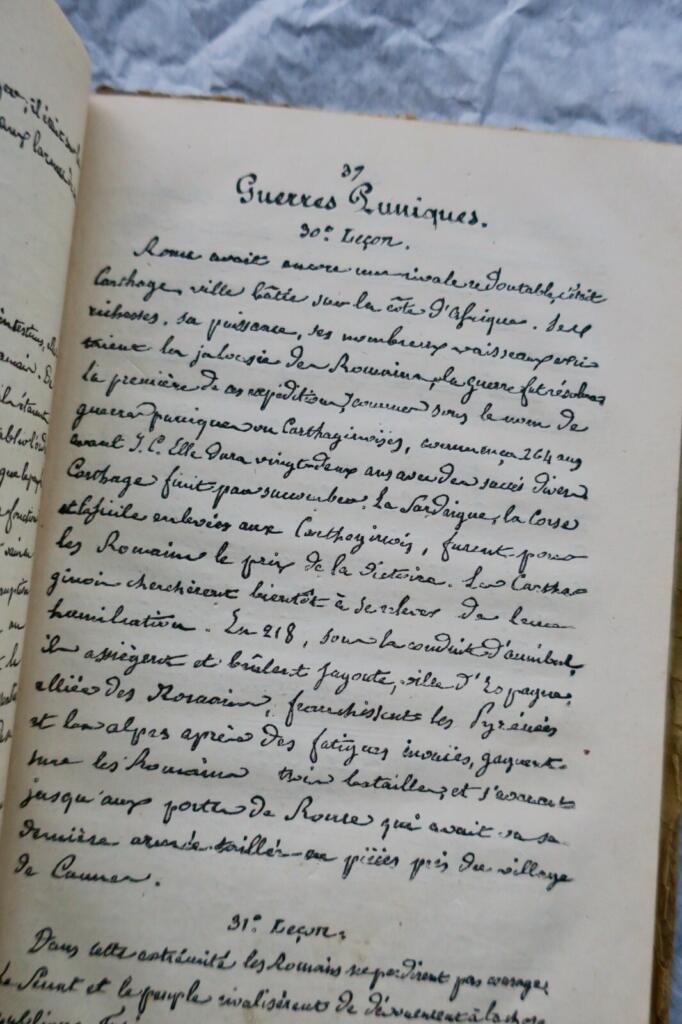 37
Guerres Puniques.
30e Leçon.
Rome avait encore une rivale redoutable, c'était
Carthage, ville bâtie sur la côte d'Afrique. Ses
richesses, sa puissance, ses nombreux vaisseaux exci
taient la jalousie des Romains, la guerre fut résolue,
la première de ces expéditions, connues sous le nom de
guerres puniques ou Carthaginoises, commença 264 ans
avant J. C. Elle dura vingt-deux ans avec des succès divers
Carthage finit par succomber. La Sardaigne, la Corse
et la Sicile enlevées aux Carthaginois, furent pour
les Romains le prix de la victoire. Les Cartha-
ginois cherchèrent bientôt à se relever de leur
humiliation. En 218, sous la conduite d'annibal,
ils assiègent et brûlent Sagonte, ville d'Espagne,
alliée des Romains, franchissent les Pyrénées
et les alpes après des fatigues inouïes, gagnent
sur les Romains trois batailles, et s'avancent
jusqu'aux portes de Rome qui avait vu sa
dernière armée taillée en pièces près du village
de Cannes.
31e Leçon.
Dans cette extrémité les Romains ne perdirent pas courage,
le Sénat et le peuple rivalisèrent de dévouement à la chose